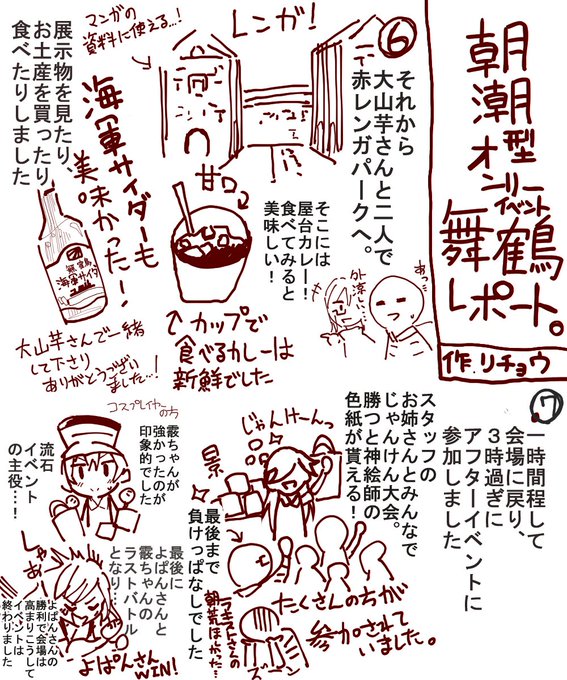 朝潮型
オンリーイベント
舞鶴
レポート。
作.リチョウ
⑥
それから
大山芋さんと二人で
赤レンガパークへ。
レンガ!
マンガの
資料に使える…!
そこには
屋台カレー!
食べてみると
美味しい!
外
涼しい…
あつ
甘口
カップで
食べるカレーは
新鮮でした
海軍サイダーも
美味かったー!
舞鶴
海軍サイダー
展示物を見たり
お土産を買ったり
食べたりしました
大山芋さんで一緒
して下さり
ありがとうござい
ました…!
⑦
一時間程して
会場に戻り、
3時過ぎに
アフターイベントに
参加しました
スタッフの
お姉さんとみんなで
じゃんけん大会。
勝つと神絵師の
色紙が貰える!
じゃんけーんっ
景
たくさんの方が
参加されて
いました。
最後まで
負けっぱなしでした
ズーン
コスプレイヤーの方
霞ちゃんが
強かったのが
印象的でした
流石
イベント
の主役…!
最後に
よぱんさんと
霞ちゃんの
ラストバトル
となり…
しゃあ
よぱんさん
WIN!
よぱんさんの
勝利で会場は
高まりこうして
イベントは
終わりました